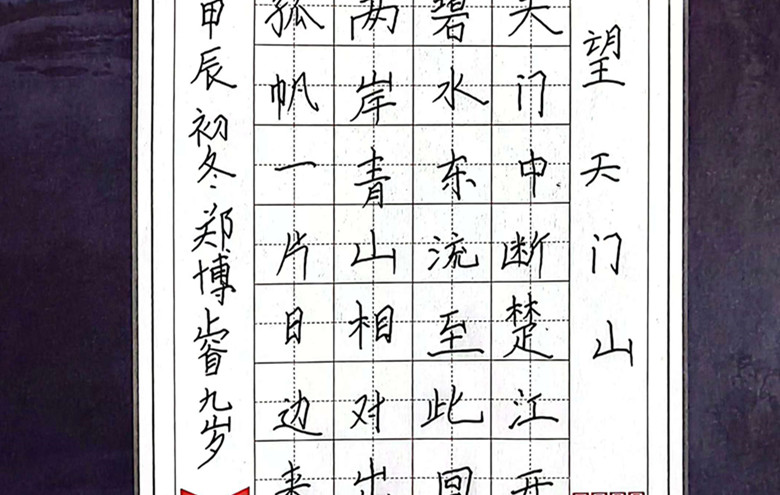 望天门山
天门中断楚江开
碧水东流至此回
两岸青山相对出
孤帆一片日边来
甲辰初冬郑博睿九岁